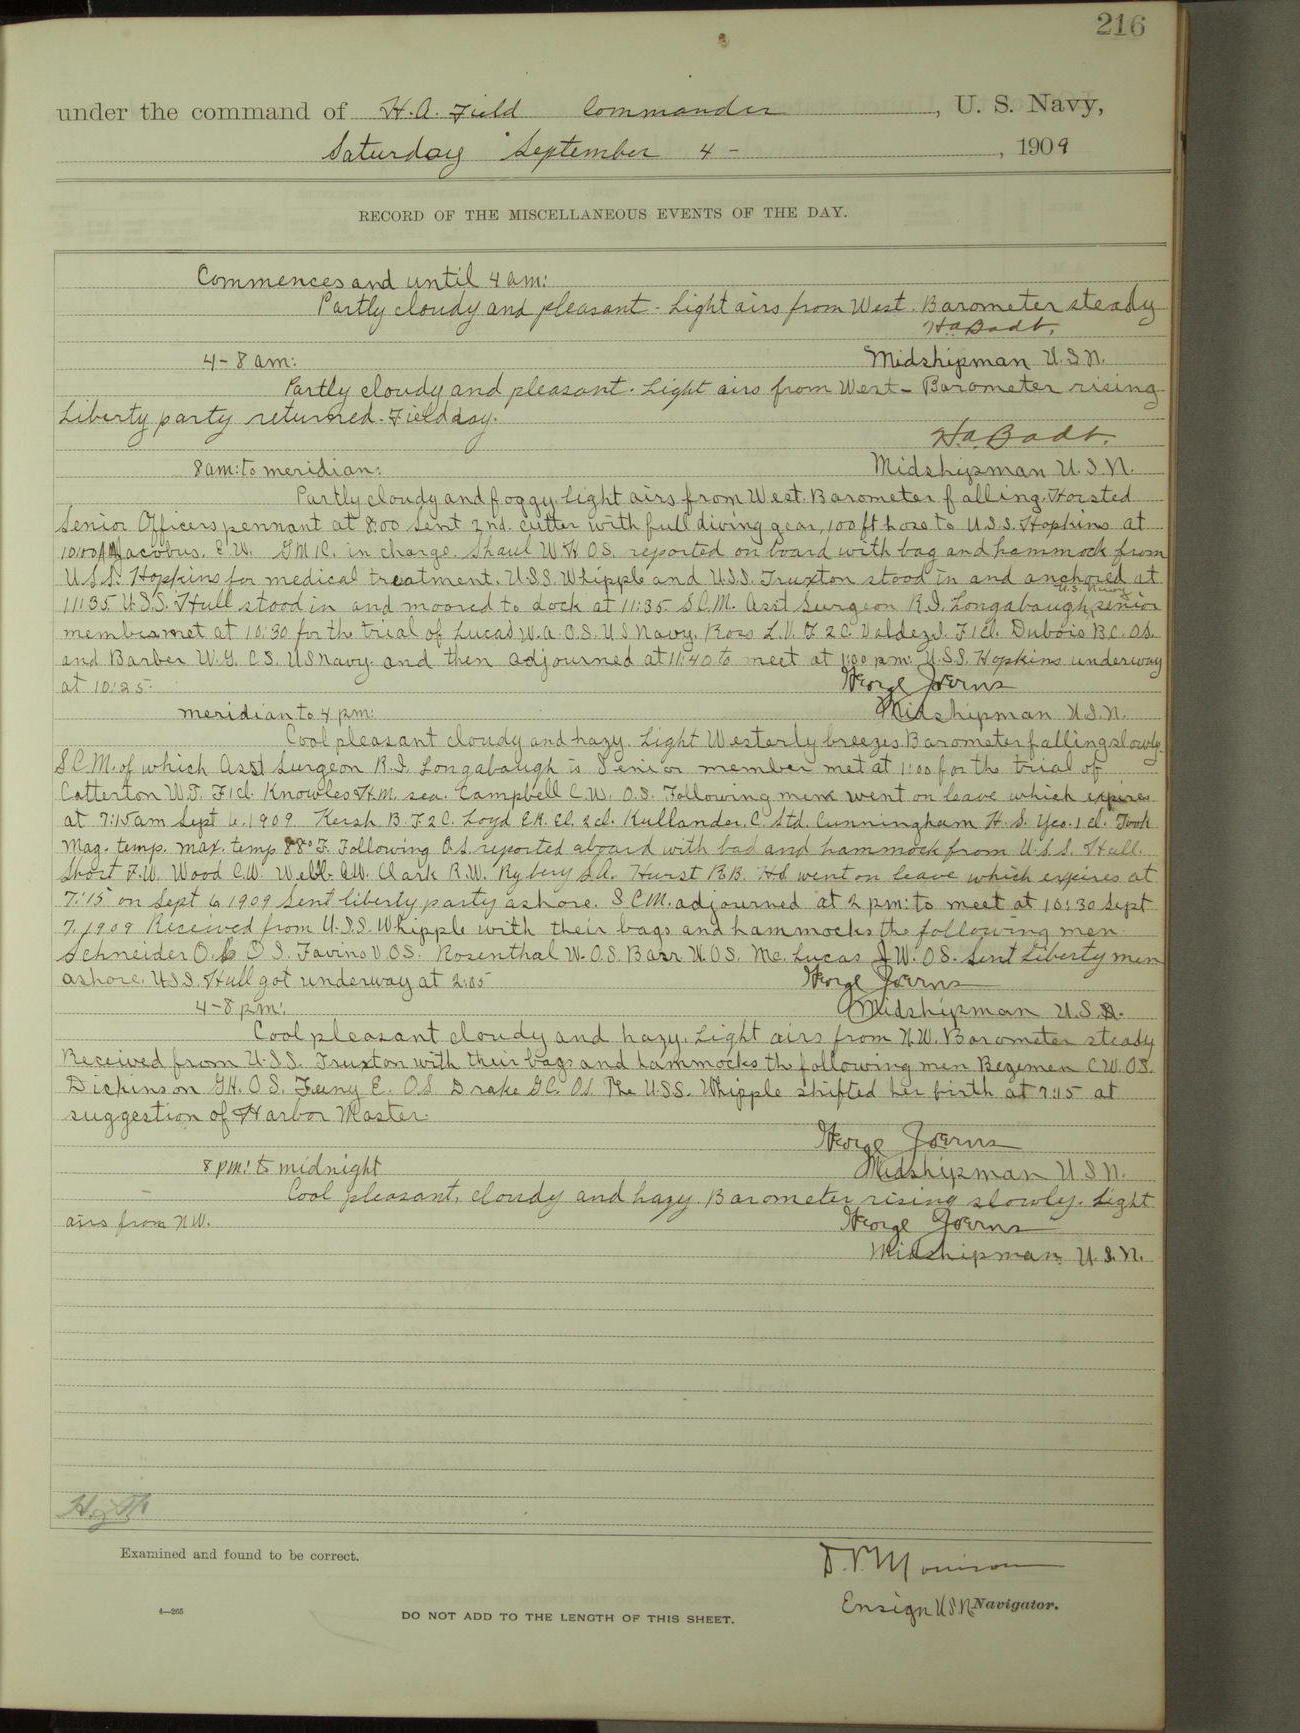 216
under the command of H.A. Field Commander, U. S. Navy,
Saturday September 4 - , 1909
RECORD OF THE MISCELLANEOUS EVENTS OF THE DAY.
Commences and until 4 am:
Partly cloudy and pleasant - Light airs from West. Barometer steady
H.A. Badt.
4-8 am:
Midshipman U.S.N.
Partly cloudy and pleasant. Light airs from West - Barometer rising
Liberty party returned. Field day.
H.A. Badt.
8 am: to meridian:
Midshipman U.S.N.
Partly cloudy and foggy. light airs from West. Barometer falling. Hoisted
Senior Officers pennant at 8:00 Sent 2nd. cutter with full diving gear, 100 ft hose to U.S.S. Hopkins at
10:00 AM Jacobus. E.W. G.M.1C. in charge. Shaul W.H. O.S. reported on board with bag and hammock from
U.S.S. Hopkins for medical treatment. U.S.S. Whipple and U.S.S. Truxton stood in and anchored at
11:35 U.S.S. Hull stood in and moored to dock at 11:35. S.C.M. Asst Surgeon R.I. Longabaugh, U.S. Navy, senior
member met at 10:30 for the trial of Lucas W.A. O.S. U S Navy. Ross L.V. F 2C. Valdez J. F1Cl. Dubois B.C. O.S.
and Barber W.G. C.S. US Navy. and then adjourned at 11:40 to meet at 1:00 pm. U.S.S. Hopkins underway
at 10:25.
George Joerns
meridian to 4 pm:
Midshipman U.S.N.
Cool pleasant cloudy and hazy. Light Westerly breezes. Barometer falling slowly.
S.C.M. of which Asst Surgeon R.I. Longabaugh is Senior member met at 1:00 for the trial of
Catterton W.T. F1Cl. Knowles H.M. sea. Campbell C.W. O.S. Following men went on leave which expires
at 7:15 am Sept 6. 1909 Kersh B. F2C. Loyd E.R. El. 2cl. Kullander. C. Std. Cunningham H.S. Yeo. 1 cl. Took
Mag. temp. max. temp 88° F. Following O.S. reported aboard with bad and hammock from U.S.S. Hull.
Short F.W. Wood C.W. Well. A.W. Clark R.W. Ryberg S.A. Hurst R.B. H.S. went on leave which expires at
7:15 on Sept 6 1909 Sent liberty party ashore. S.C.M. adjourned at 2 pm: to meet at 10:30 Sept
7, 1909 Received from U.S.S. Whipple with their bags and hammocks the following men
Schneider O. O.S. Favino V. O.S. Rosenthal W. O.S. Barr W. O.S. Mc. Lucas J.W. O.S. Sent Liberty men
ashore. U.S.S. Hull got underway at 2:05
George Joerns
4-8 pm:
Midshipman U.S.N.
Cool pleasant cloudy and hazy. Light airs from N.W. Barometer steady
Received from U.S.S. Truxton with their bags and hammocks the following men Begemen C.W. OS.
Dickinson G.H. O.S. Feeny E. O.S. Drake G.C. O.S. The U.S.S. Whipple shifted her birth at 7:15 at
suggestion of Harbor Master.
George Joerns
8 pm: to midnight
Midshipman U.S.N.
Cool pleasant, cloudy and hazy. Barometer rising slowly. Light
airs from N.W.
George Joerns
Midshipman U.S.N.
Examined and found to be correct.
D.P. Morrison
Ensign U.S.N. Navigator.
4—265
DO NOT ADD TO THE LENGTH OF THIS SHEET.